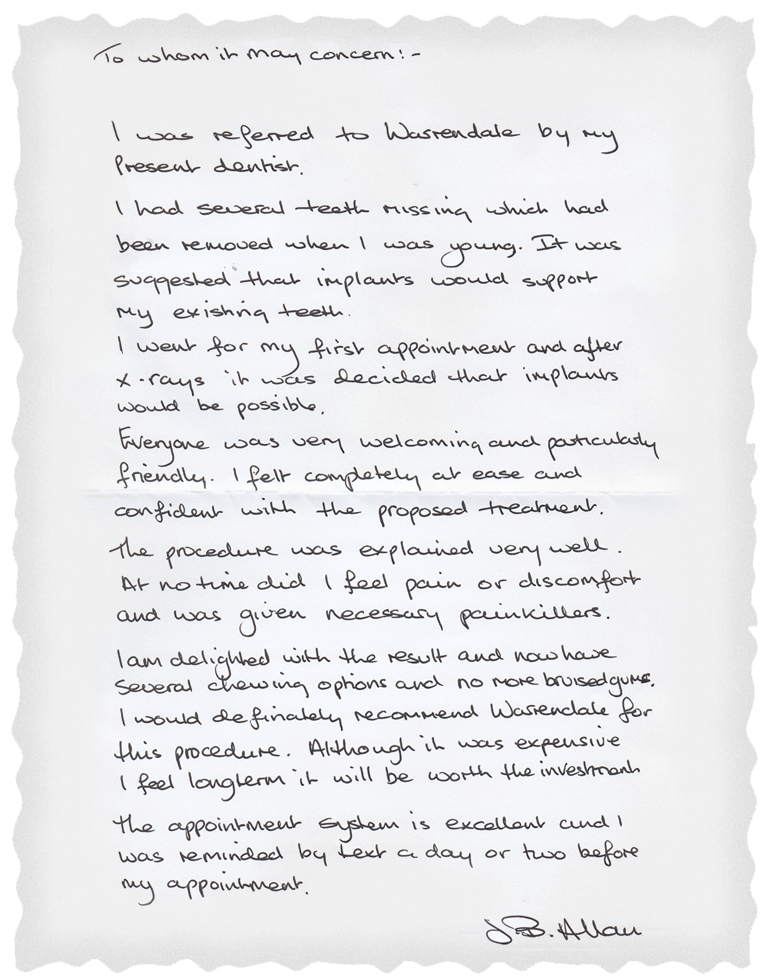 To whom it may concern:-
I was referred to Warrendale by my
Present dentist.
I had several teeth missing which had
been removed when I was young. It was
suggested that implants would support
my existing teeth.
I went for my first appointment and after
x-rays it was decided that implants
would be possible.
Everyone was very welcoming and particularly
friendly. I felt completely at ease and
confident with the proposed treatment.
The procedure was explained very well.
At no time did I feel pain or discomfort
and was given necessary painkillers.
I am delighted with the result and now have
several chewing options and no more bruised gums.
I would definately recommend Warrendale for
this procedure. Although it was expensive
I feel longterm it will be worth the investment
The appointment system is excellent and I
was reminded by text a day or two before
my appointment.
J B. Allan